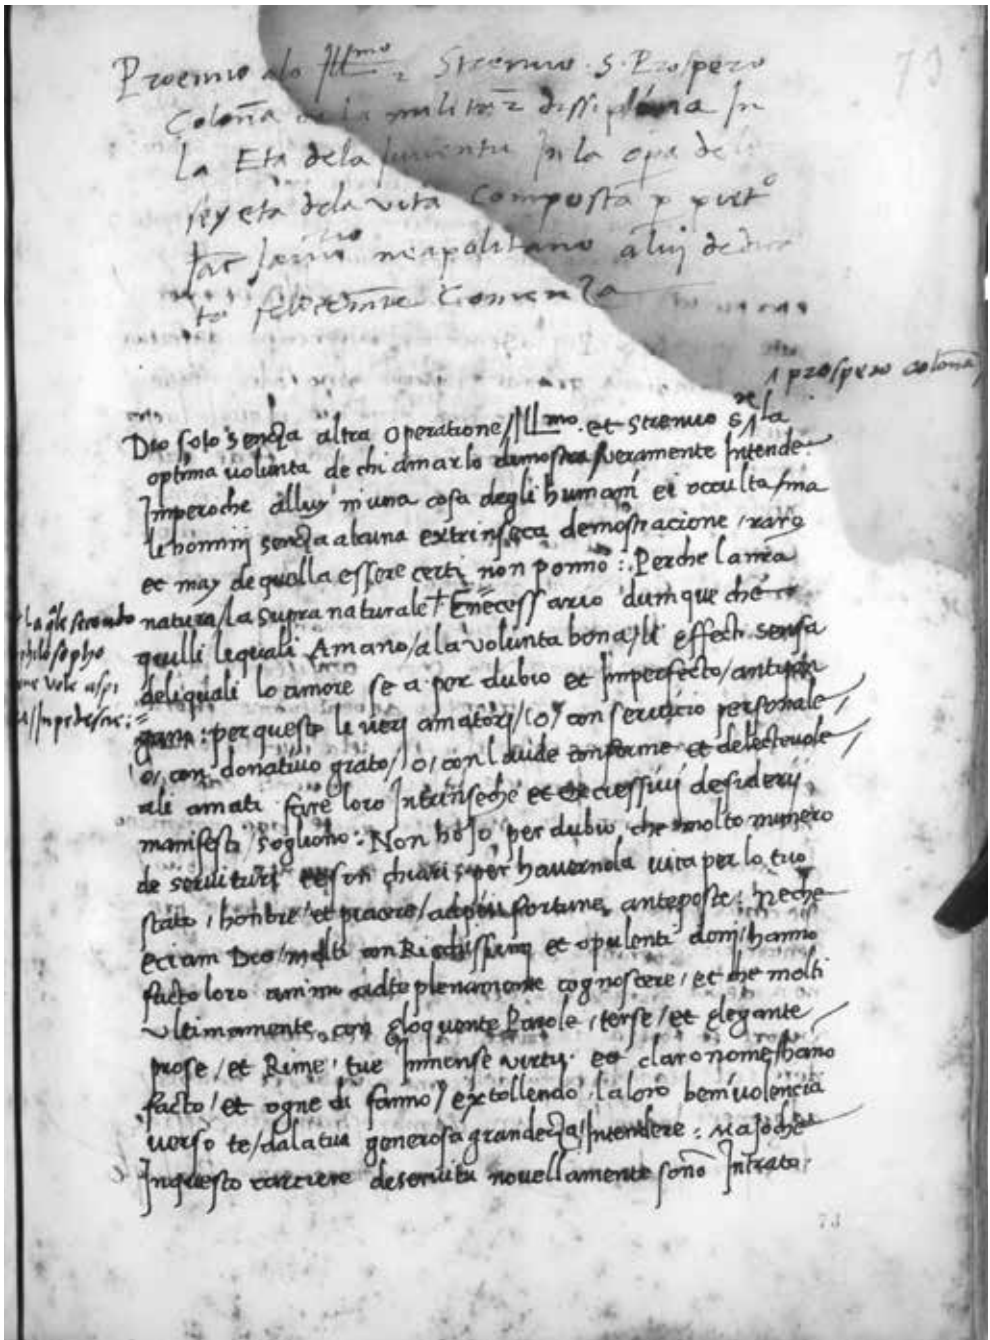 73
Proemio alo Ill^mo z Strenuo .S. Prospero
Colōna de la militar dissiplina In
la Eta dela Juventu In la opa de
sey eta dela vita Composta p piet^o
Jac Jan^rio neapolitano a lui
to felicemte Comenza
prospero colona
Dio solo senza altra operatione / Ill^mo. et strenuo S la
optima volunta de chi amarlo demostra / veramente Intende.
Imperoche alluy niuna cosa degli humani ei occulta / ma
li homini senza alcuna extrinseca demostracione / raro
et may de quella essere certi non ponno : Perche la mea
natura / la supra naturale † E necessario dumque che
quilli li quali Amano / a la volunta bona / li effecti senza
deli quali lo amore se a per dubio et Imperfecto /
: per questo li veri amatori / (o) con servicio personale /
o, con donativo grato / o, con laude conforme et delectevole /
ali amati fare loro Intrinseche et excessivi desiderij
manifesti sogliono : Non ho Io per dubio che molto numero
de servituri te son chiari per havernola vita per lo tuo
stato / honore et piacere / fortune anteposte : Neche
eciam Dio / molti con Ricchissimi et opulenti doni / hanno
facto loro animo ad te plenamente cognoscere / et che molti
ultimamente con eloquente Parole / terse / et elegante
prose / et Rime / tue Immense virtu et claro nome / hano
facto / et ogne di fanno / extollendo la loro benivolencia
verso te / dala tua generosa grandeza Intendere : Ma Io che
In questo carcere de servitu novellamente sono Intrato
la qle secundo
philosopho
vole
73